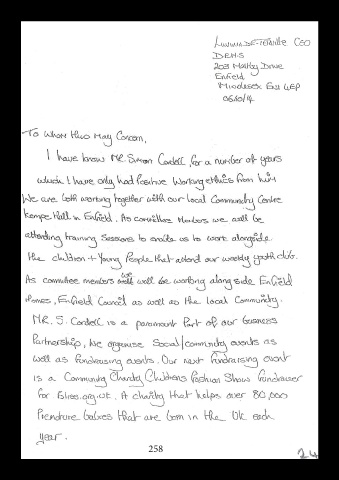 CEO
D.E.M.S
203 Malby Drive
Enfield
Middlesex EN1 4EP
06/10/14
To Whom this May Concern,
I have know MR. Simon Cordell, for a number of years
which I have only had Positive working ethics from him
We are both working together with our local Community Centre
Kempe Hall in Enfield. As committee Members we will be
attending training sessions to enable us to work alongside
the children + Young People that attend our weekly youth club.
As committee members we will be working alongside Enfield
Homes, Enfield Council as well as the local Community.
MR. S. Cordell is a paramount Part of our business
Partnership, We organise Social/community events as
well as fundraising events. Our next fundraising event
is a Community Charity Childrens Fashion Show fundraiser
for Bliss.org.uk. A charity that helps over 80,000
Premature babies that are born in the UK each
year.
258
24